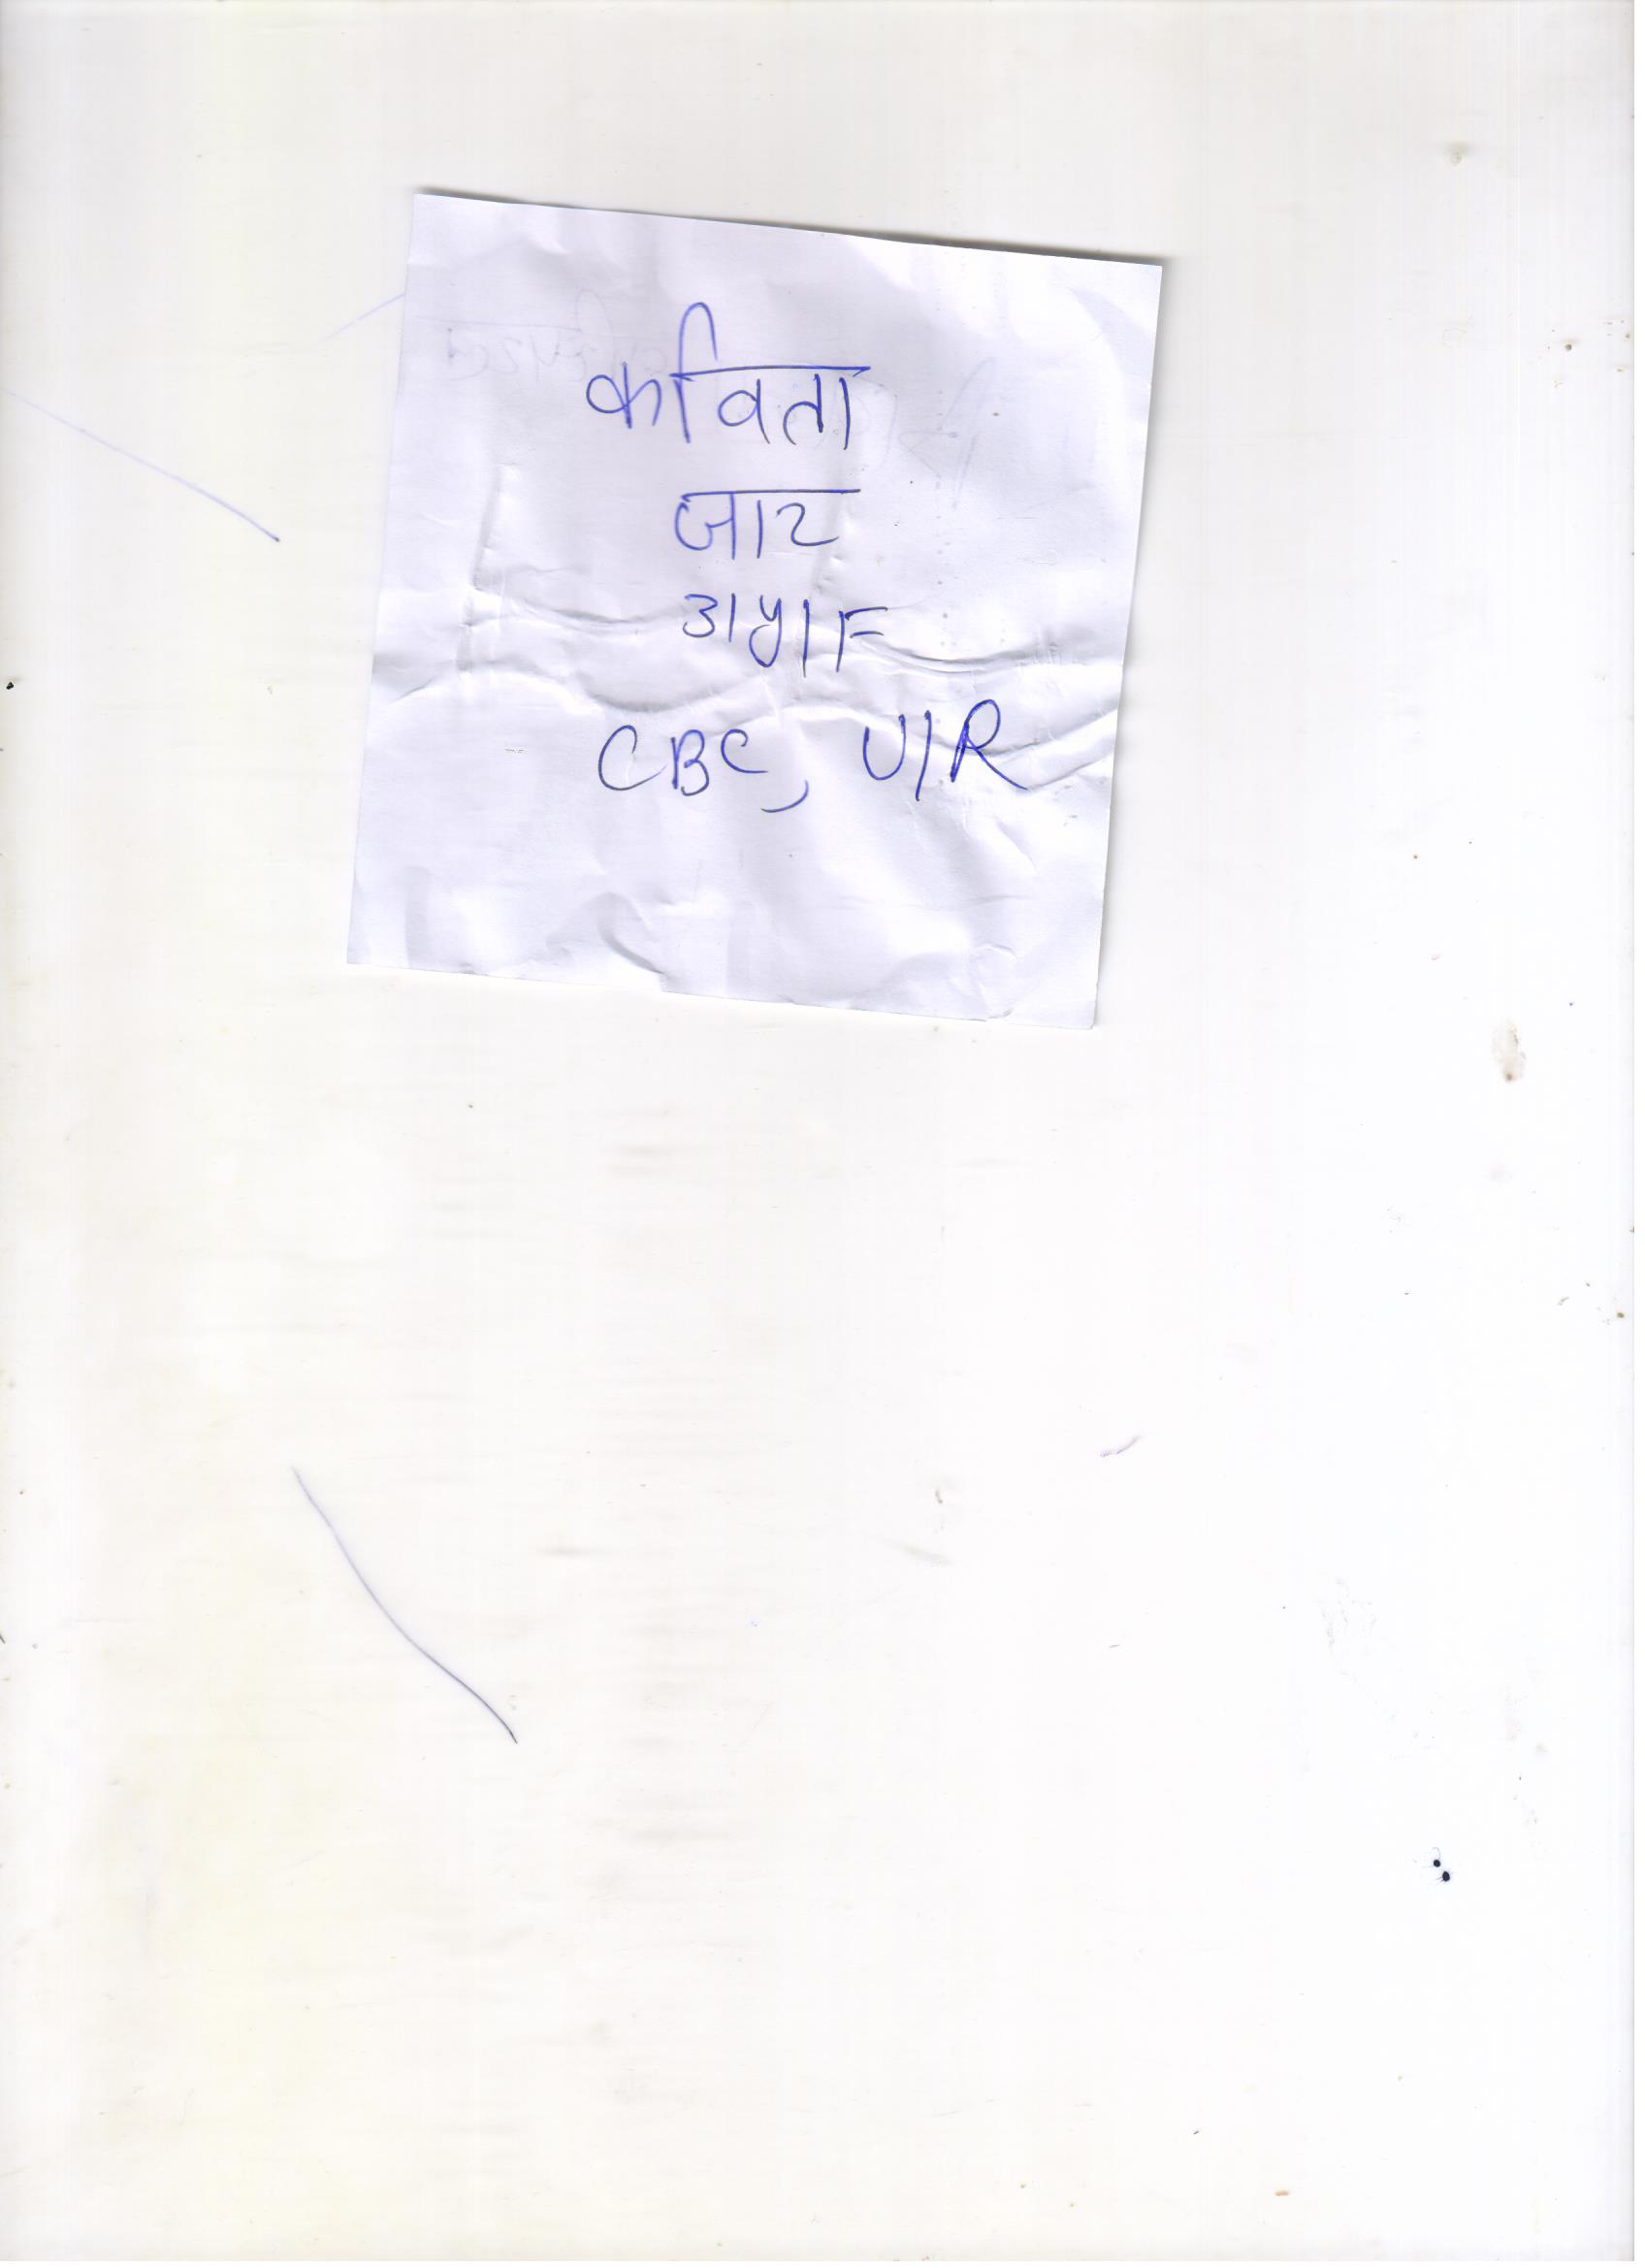 कविता
जाट
31y/F
CBC, U/R